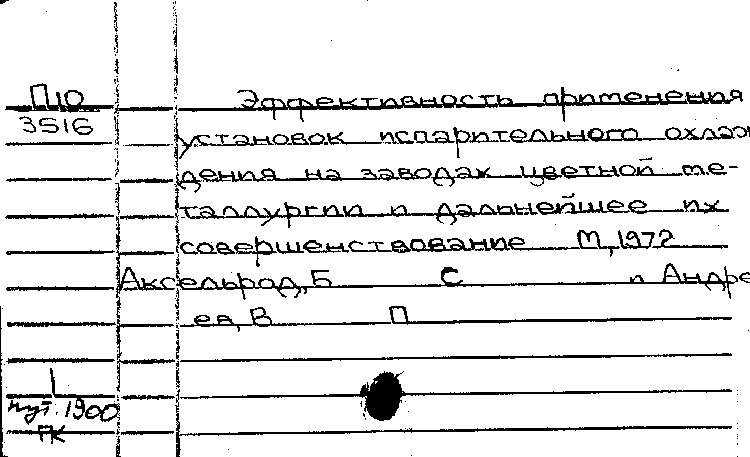 П10
3516
Эффективность применения
установок испарительного охлаж
дения на заводах цветной ме-
таллургии и дальнейшее их
совершенствование М,1972
Аксельрод, Б С и Андре
ев, В П
1900
ГК